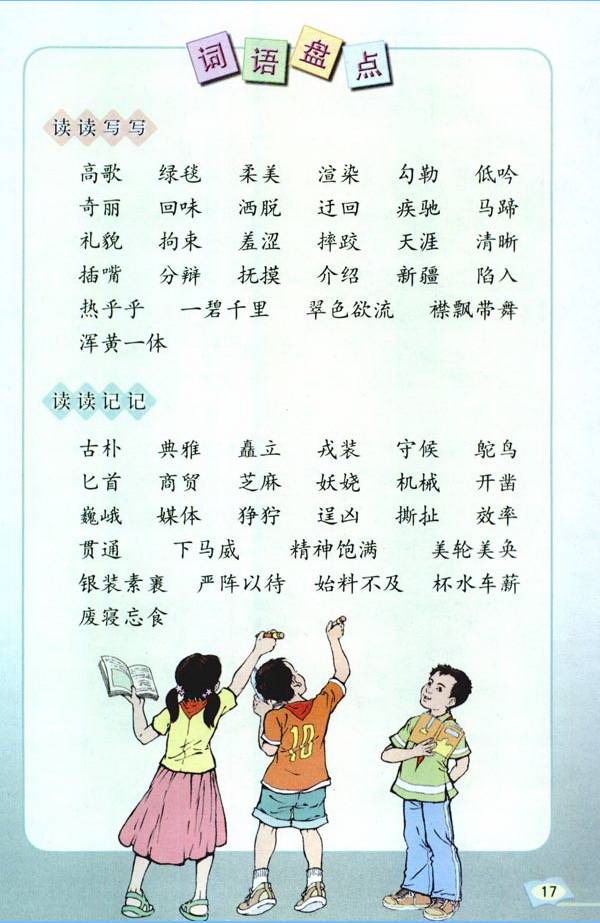 词语盘点
读读写写
高歌 绿毯 柔美 渲染 勾勒 低吟
奇丽 回味 洒脱 迂回 疾驰 马蹄
礼貌 拘束 羞涩 摔跤 天涯 清晰
插嘴 分辩 抚摸 介绍 新疆 陷入
热乎乎 一碧千里 翠色欲流 襟飘带舞
浑黄一体
读读记记
古朴 典雅 矗立 戎装 守候 鸵鸟
匕首 商贸 芝麻 妖娆 机械 开凿
巍峨 媒体 狰狞 逞凶 撕扯 效率
贯通 下马威 精神饱满 美轮美奂
银装素裹 严阵以待 始料不及 杯水车薪
废寝忘食
10
17